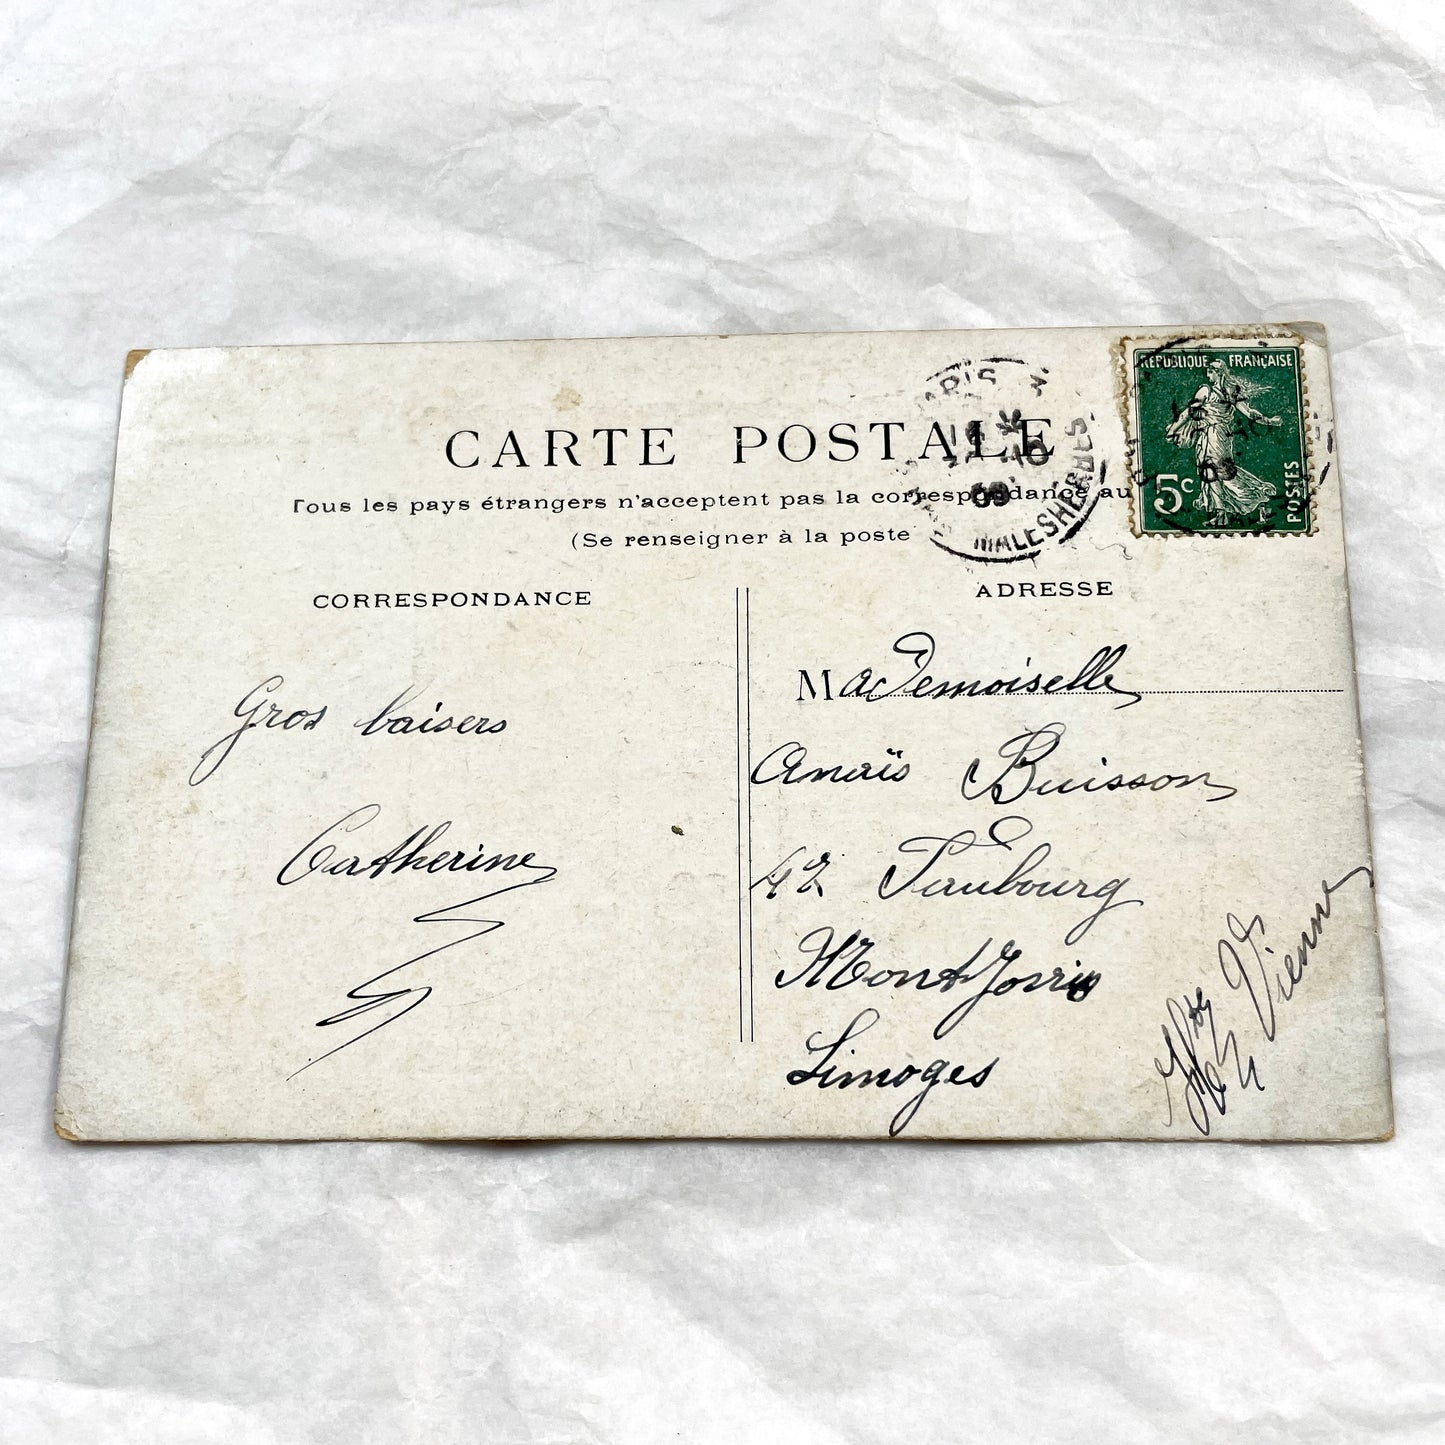 CARTE POSTALE
Tous les pays étrangers n'acceptent pas la correspondance au
(Se renseigner à la poste
PARIS
09
MALESHERBES
RÉPUBLIQUE FRANÇAISE
5c
POSTES
CORRESPONDANCE
Gros baisers
Catherine
ADRESSE
Mademoiselle
Anaïs Buisson
42 Faubourg
Montjovis
Limoges
Hte Vienne